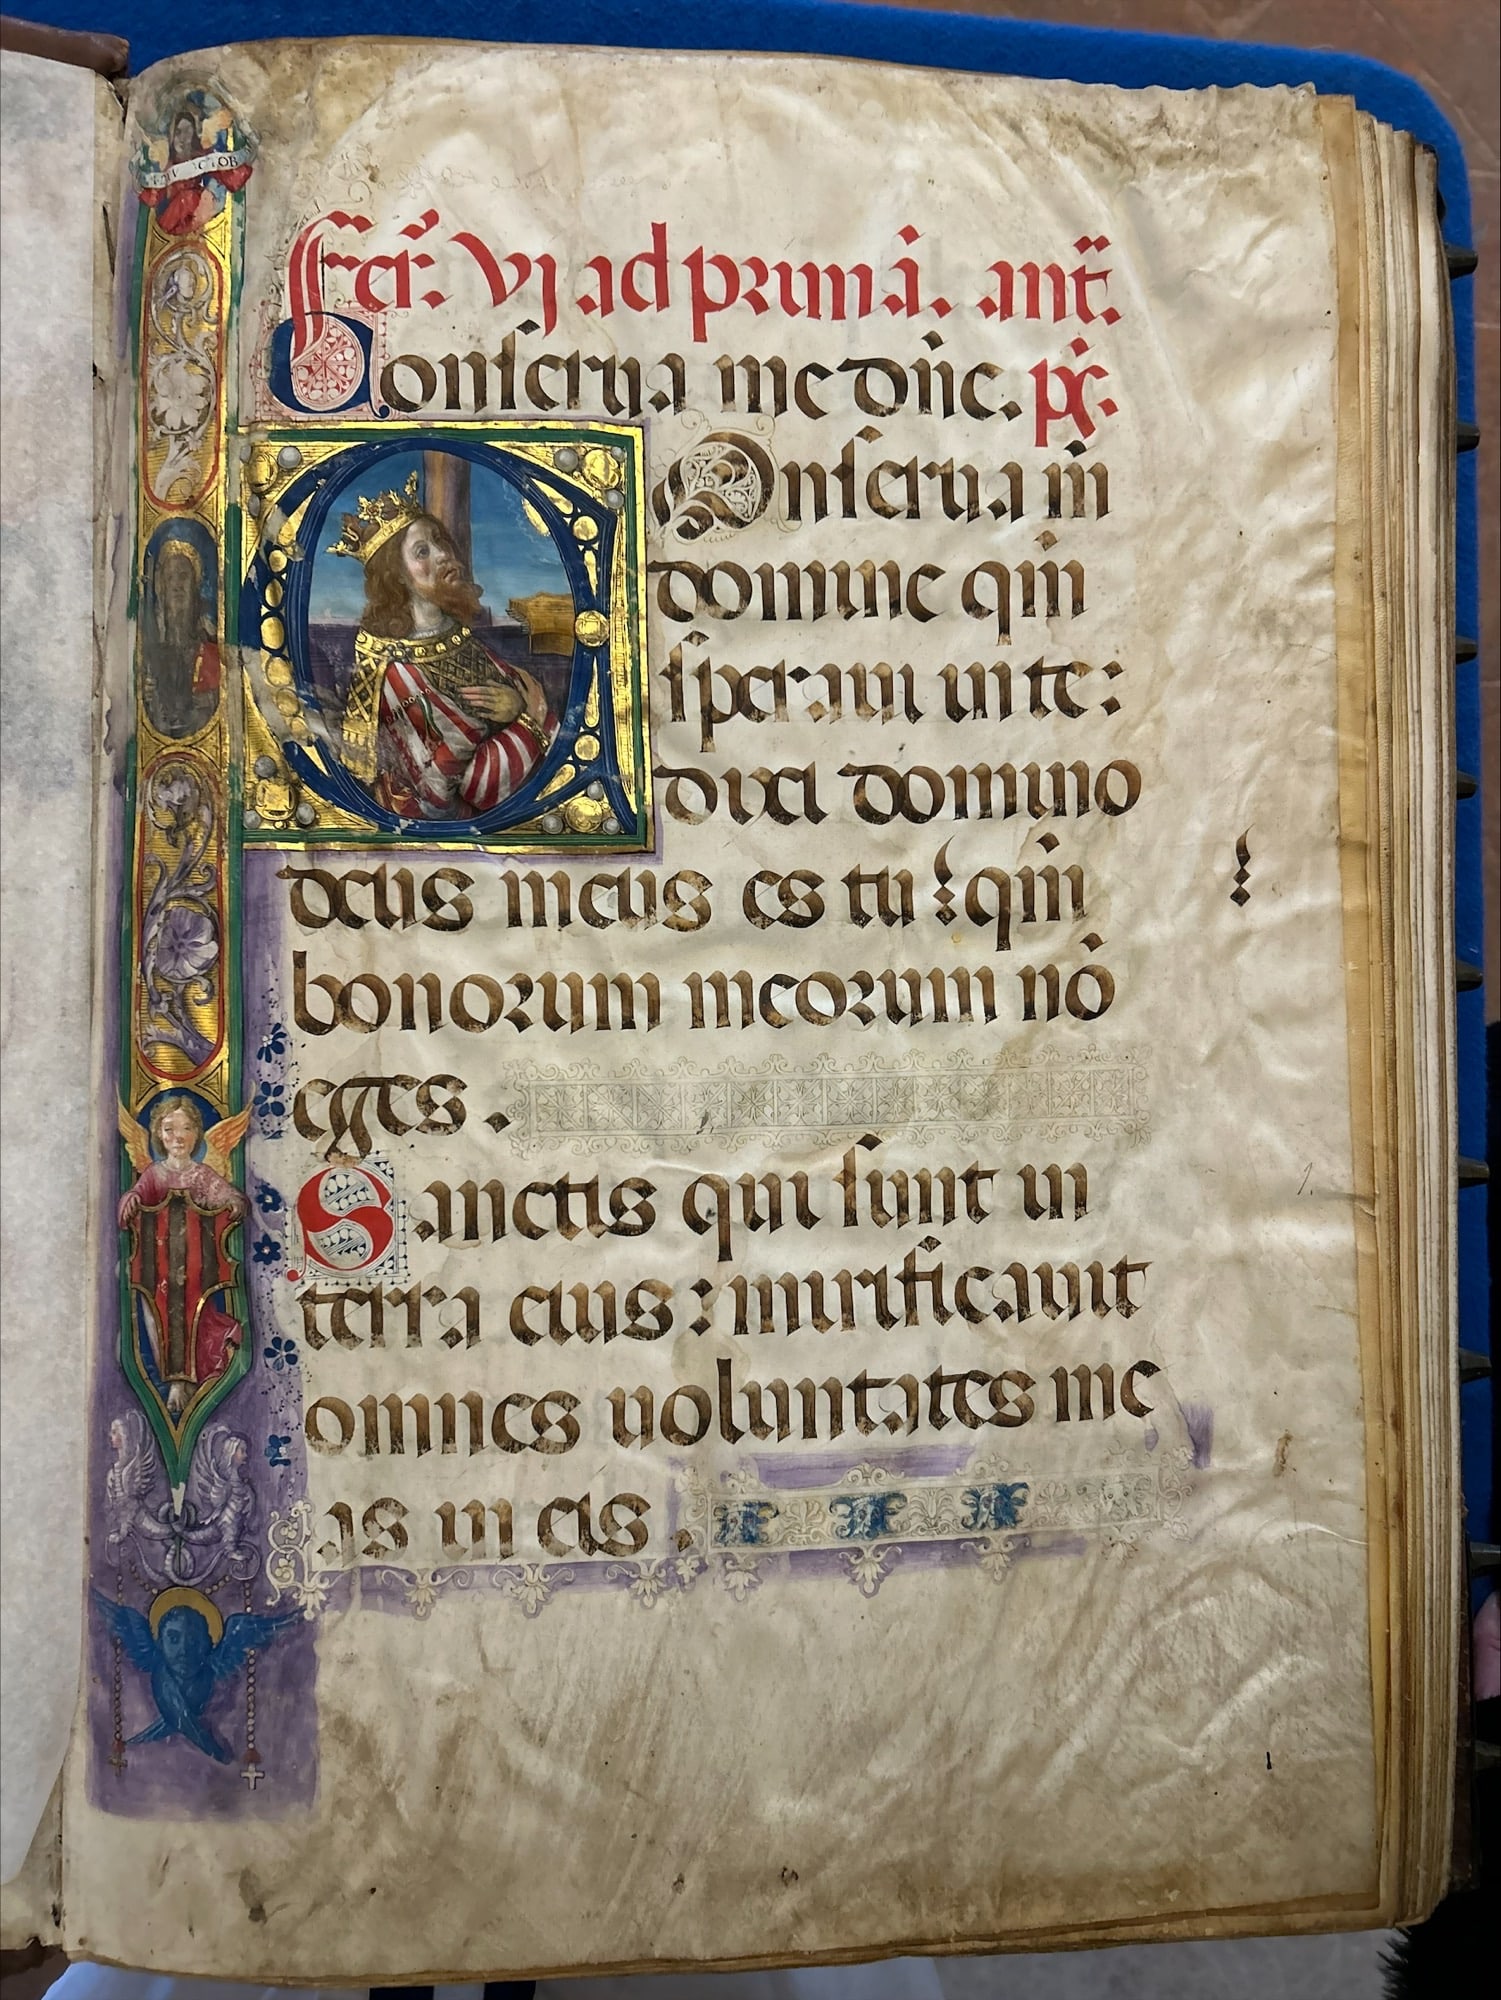 Fer̃. vj ad primã. ant̃.
Conserua me dñe. p̃s.
Conserua m̃
domine qm̃
speraui in te:
dixi domino
deus meus es tu : qm̃
bonorum meorum nõ
eges.
Sanctis qui sunt in
terra eius : mirificauit
omnes uoluntates me
as in eis.